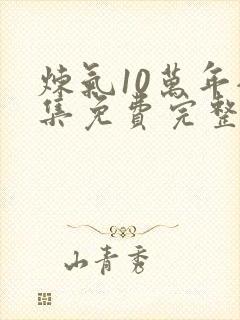 煉氣10萬年
集免費完整
山青秀